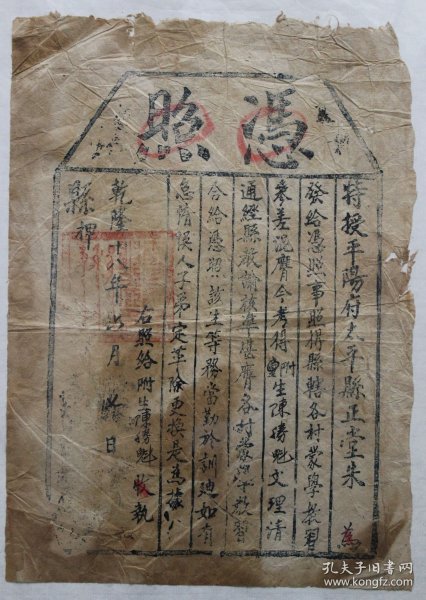 憑照
特授平陽府太平縣正堂朱 為
發給憑照事照得縣轄各村蒙學教習
參差混膺今考得附生陳勝魁文理清
通經縣教諭核準堪膺各村蒙學教習
合給憑照該生等務當勤於訓迪如有
怠惰誤人子弟定革除更換是為據
右照給附生陳勝魁收執
乾隆 年 月 日
縣裡
孔夫子旧书网
www.kongfz.com